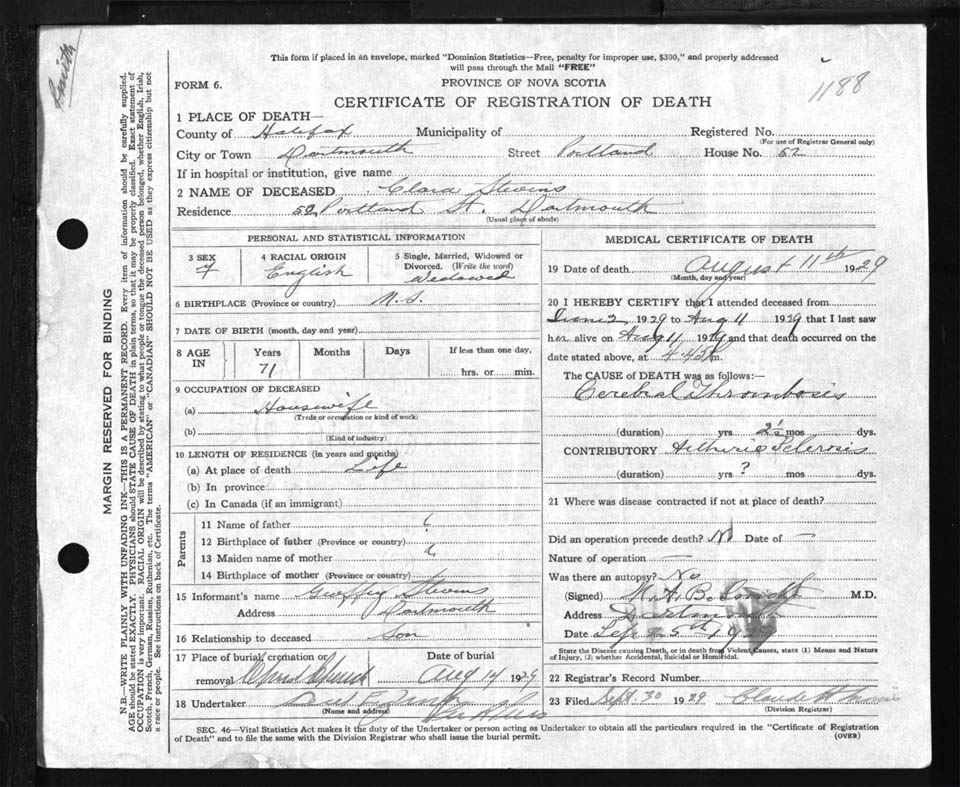 This form if placed in an envelope, marked "Dominion Statistics—Free, penalty for improper use, $300," and properly addressed
will pass through the Mail "FREE"
Smith
FORM 6.
PROVINCE OF NOVA SCOTIA
1188
CERTIFICATE OF REGISTRATION OF DEATH
1 PLACE OF DEATH—
County of Halifax Municipality of Registered No.
(For use of Registrar General only)
City or Town Dartmouth Street Portland House No. 52
If in hospital or institution, give name
2 NAME OF DECEASED Clara Stevens
Residence 52 Portland St. Dartmouth
(Usual place of abode)
PERSONAL AND STATISTICAL INFORMATION
3 SEX 4 RACIAL ORIGIN 5 Single, Married, Widowed or
Divorced. (Write the word)
F English Widowed
6 BIRTHPLACE (Province or country) N.S.
7 DATE OF BIRTH (month, day and year)
8 AGE IN Years Months Days If less than one day,
71 hrs. or min.
9 OCCUPATION OF DECEASED
(a) Housewife
(Trade or occupation or kind of work)
(b)
(Kind of industry)
10 LENGTH OF RESIDENCE (in years and months)
(a) At place of death Life
(b) In province
(c) In Canada (if an immigrant)
Parents
11 Name of father
12 Birthplace of father (Province or country)
13 Maiden name of mother
14 Birthplace of mother (Province or country)
15 Informant's name Stevens
Address Dartmouth
16 Relationship to deceased Son
17 Place of burial, cremation or Date of burial
removal Christ Church Aug 14 1929
18 Undertaker
(Name and address)
MEDICAL CERTIFICATE OF DEATH
19 Date of death August 11th 1929
(Month, day and year)
20 I HEREBY CERTIFY that I attended deceased from
June 2 1929 to Aug 11 1929 that I last saw
her alive on Aug 11 1929 and that death occurred on the
date stated above, at 4.45 P m.
The CAUSE of DEATH was as follows:—
Cerebral Thrombosis
(duration) yrs 2½ mos dys.
CONTRIBUTORY Sclerosis
(duration) yrs ? mos dys.
21 Where was disease contracted if not at place of death?
Did an operation precede death? No Date of —
Nature of operation —
Was there an autopsy? No
(Signed) M.D.
Address
Date Sep 25th
State the Disease causing Death, or in death from Violent Causes, state (1) Means and Nature
of Injury, (2) whether Accidental, Suicidal or Homicidal.
22 Registrar's Record Number
23 Filed Sept. 30 1929 Claude
(Division Registrar)
SEC. 46—Vital Statistics Act makes it the duty of the Undertaker or person acting as Undertaker to obtain all the particulars required in the "Certificate of Registration
of Death" and to file the same with the Division Registrar who shall issue the burial permit.
(OVER)
MARGIN RESERVED FOR BINDING
N.B.—WRITE PLAINLY WITH UNFADING INK—THIS IS A PERMANENT RECORD. Every item of information should be carefully supplied.
AGE should be stated EXACTLY. PHYSICIANS should STATE CAUSE OF DEATH in plain terms, so that it may be properly classified. Exact statement of
OCCUPATION is very important. RACIAL ORIGIN will be described by stating to what people or tongue the deceased person belonged, whether English, Irish,
Scotch, French, German, Russian, Ruthenian, etc. The terms "AMERICAN" or "CANADIAN" SHOULD NOT BE USED as they express citizenship but not
a race or people. See instructions on back of Certificate.